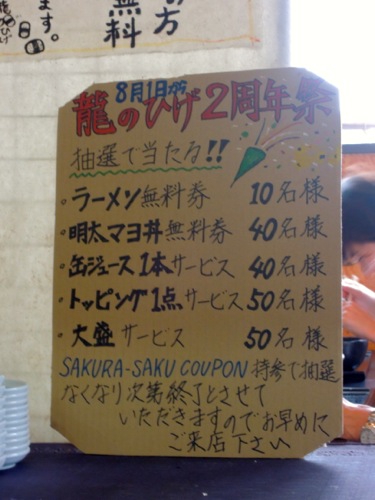 の方
ます。
無料
龍のひげ
8月1日から
龍のひげ2周年祭
抽選で当たる!!
・ラーメン無料券 10名様
・明太マヨ丼無料券 40名様
・缶ジュース1本サービス 40名様
・トッピング1点サービス 50名様
・大盛サービス 50名様
SAKURA-SAKU COUPON 持参で抽選
なくなり次第終了とさせて
いただきますのでお早めに
ご来店下さい